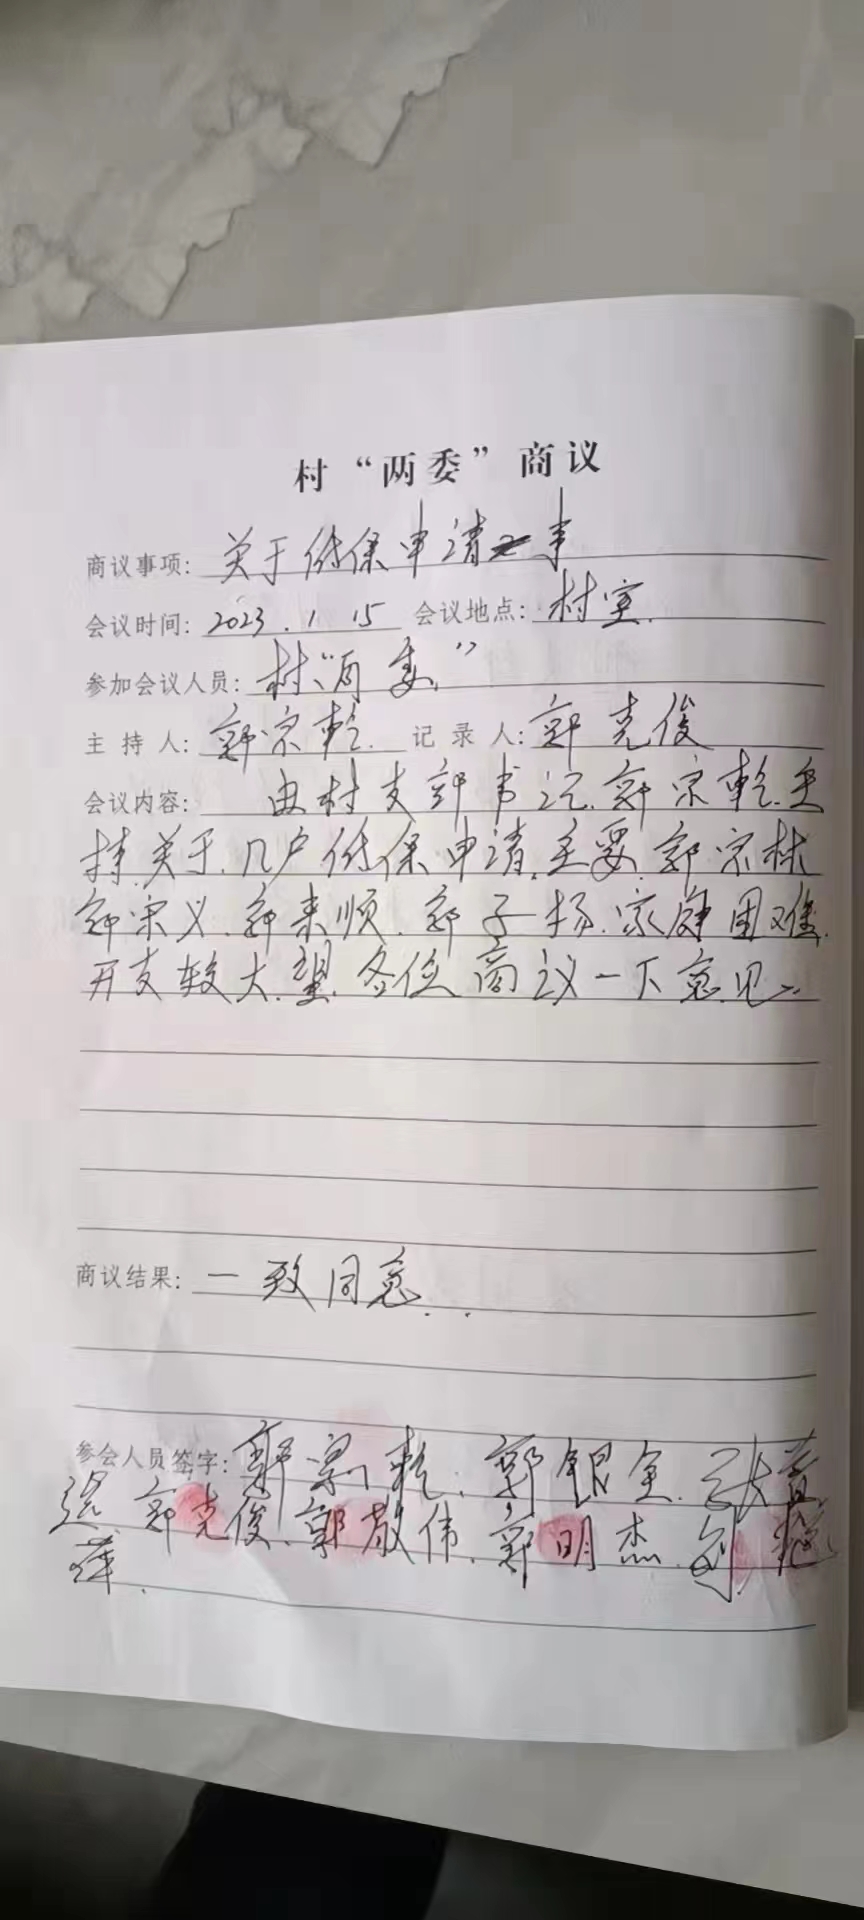 村“两委”商议
商议事项: 关于低保申请之事
会议时间: 2023.1 15 会议地点: 村室.
参加会议人员: 村“两委”
主持人: 郭宗乾. 记录人: 郭克俊
会议内容: 由村支部书记.郭宗乾.主
持.关于.几户低保申请.主要.郭宗林
郭宗义.郭来顺.郭子扬.家庭困难.
开支较大.望.各位商议一下意见..
商议结果: 一致同意..
参会人员签字: 郭宗乾. 郭银全. 张
郭克俊.郭敬伟.郭明杰.刘
萍.